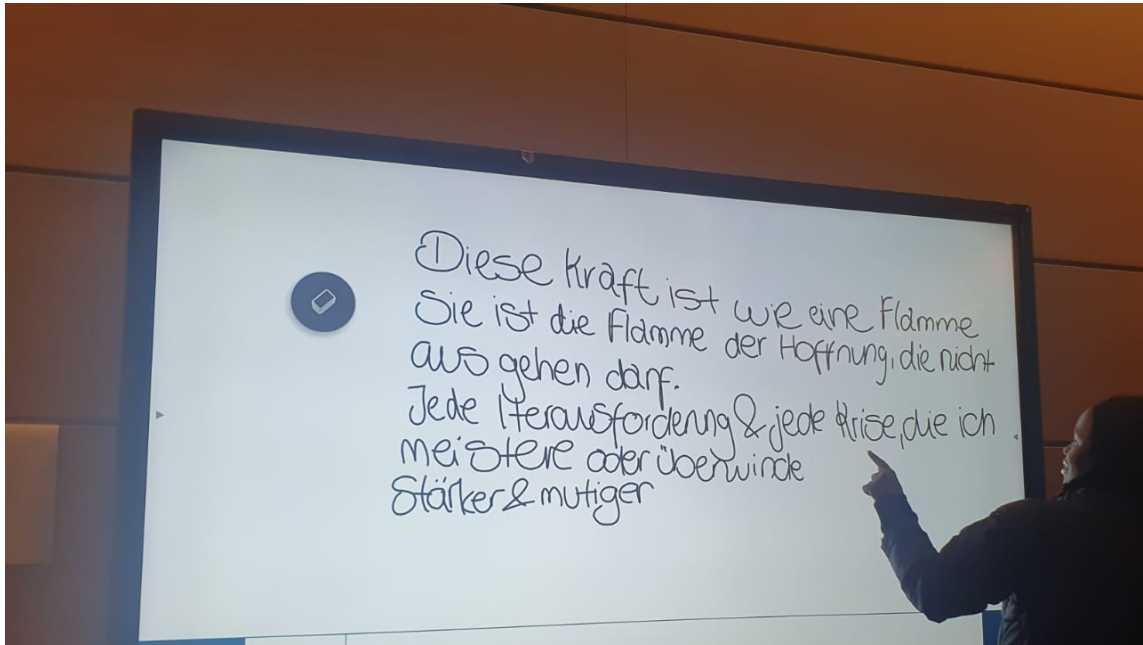 Diese Kraft ist wie eine Flamme
Sie ist die Flamme der Hoffnung, die nicht
aus gehen darf.
Jede Herausforderung & jede Krise, die ich
meistere oder überwinde
Stärker & mutiger